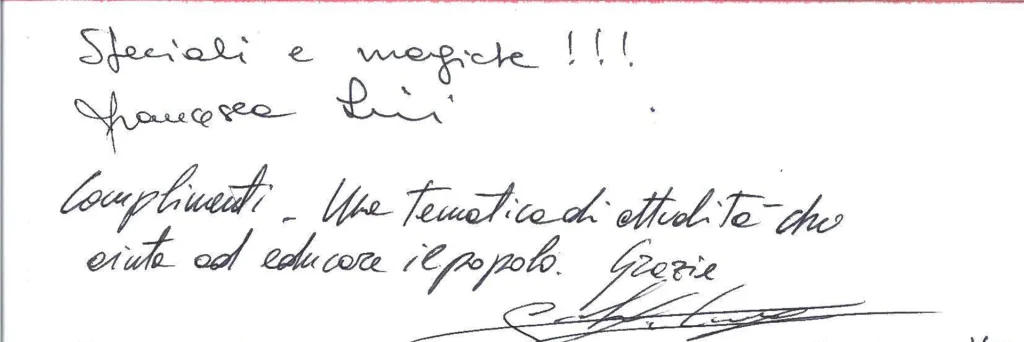 Speciali e magiche !!!
Francesca
Complimenti - Una tematica di attualità che
aiuta ad educare il popolo. Grazie